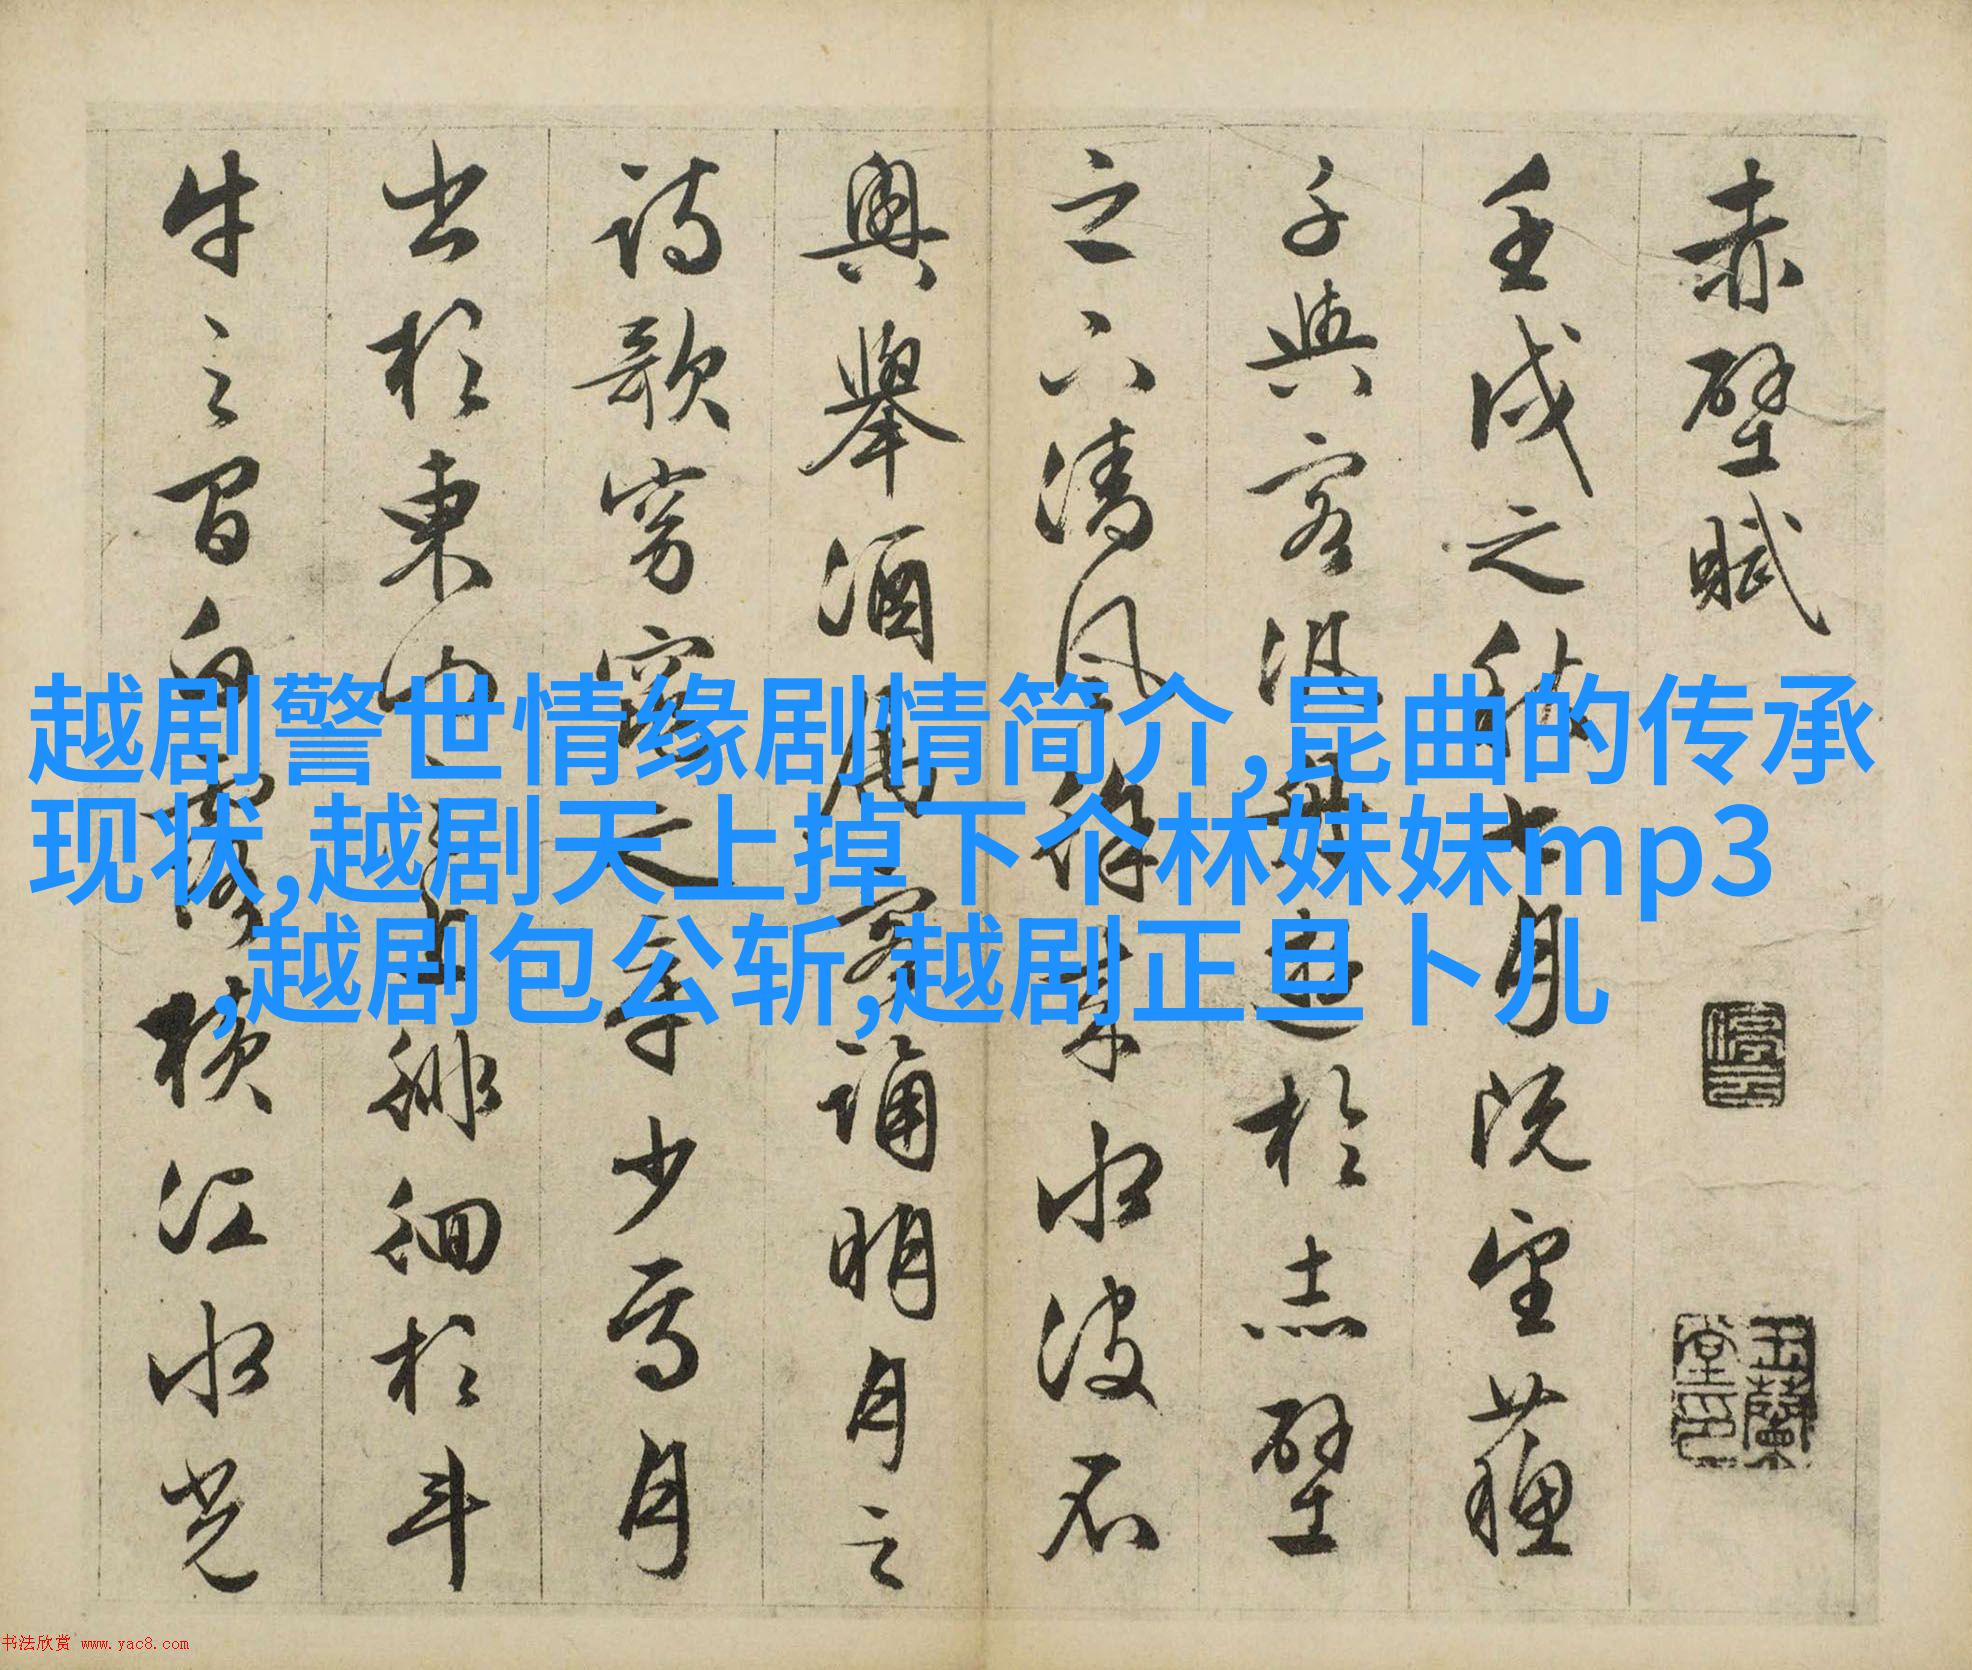 赤壁賦
壬戌之秋七月既望蘇
子與客泛舟遊於赤壁
之下清風徐來水波不
興舉酒屬客誦明月之
詩歌窈窕之章少焉月
出於東山之上徘徊於斗
牛之間白露橫江水光
停雲
玉蘭堂印
越剧警世情缘剧情简介,昆曲的传承
现状,越剧天上掉下个林妹妹mp3
,越剧包公斩,越剧正旦卜儿
书法欣赏 www.yac8.com